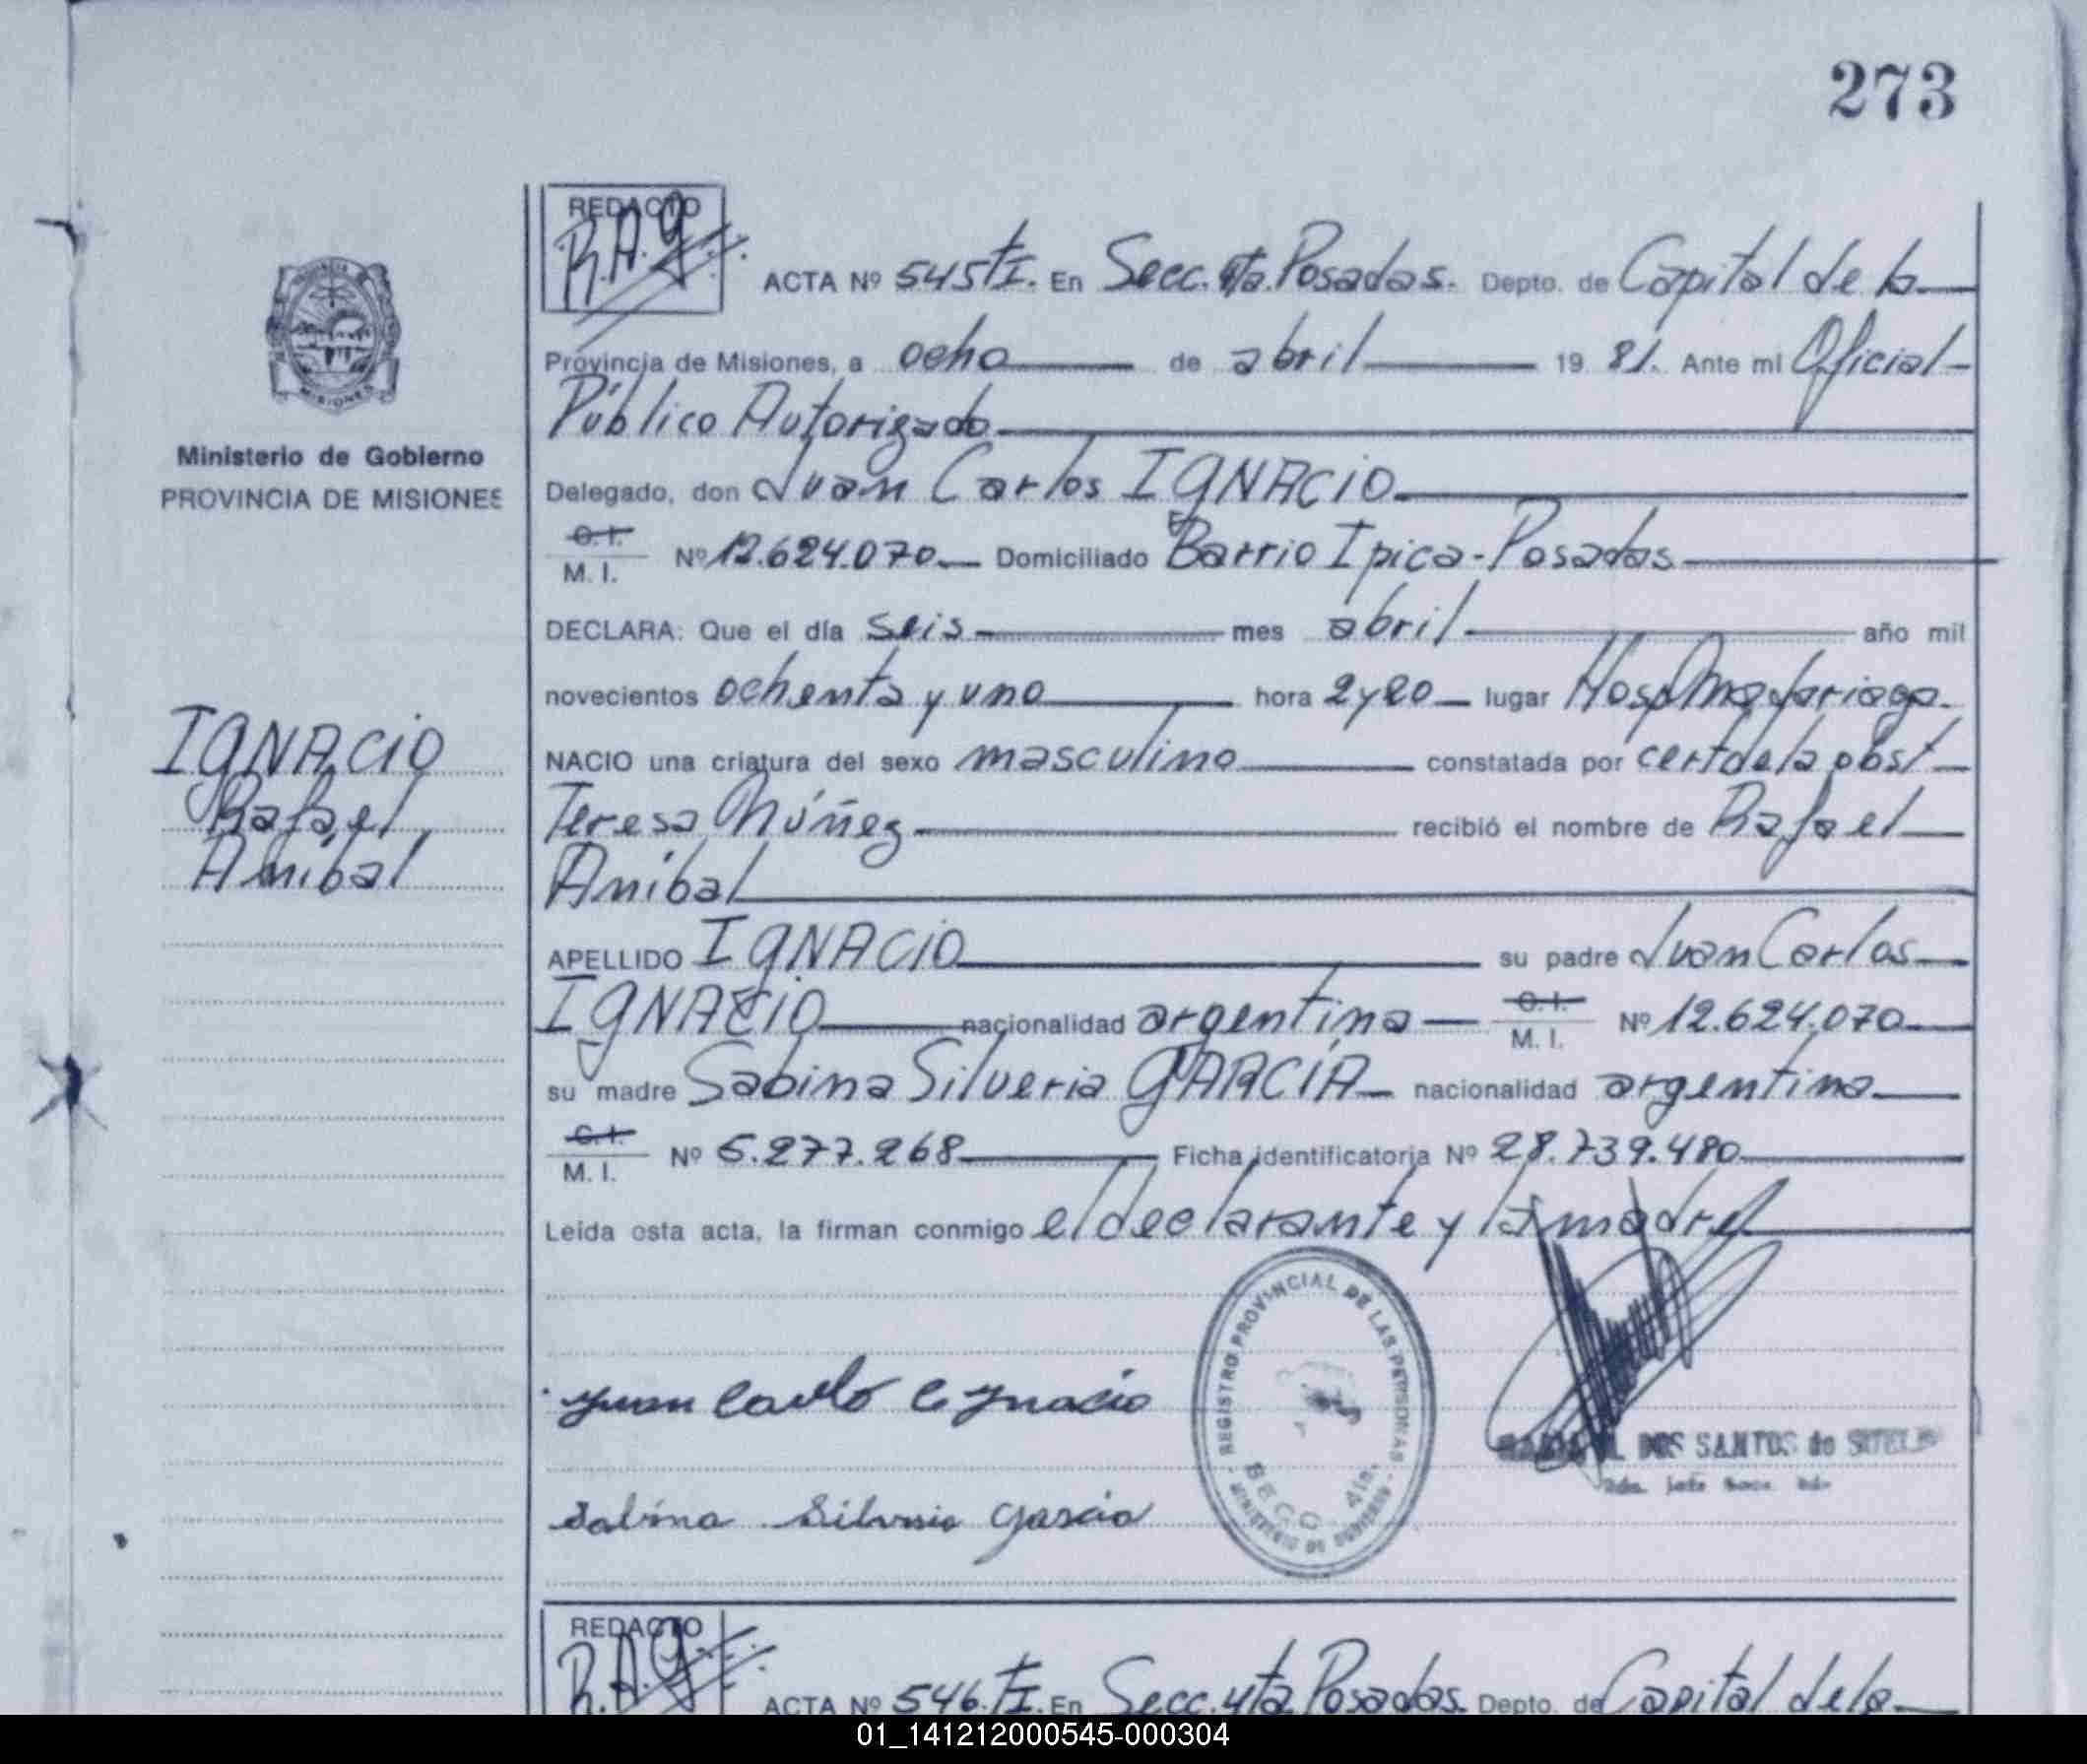 273
REDACTO
R.A.G.
ACTA Nº 545 TI. En Secc. 4ta. Posadas. Depto. de Capital de la
Provincia de Misiones, a ocho de abril 19 81. Ante mi Oficial
Público Autorizado
Delegado, don Juan Carlos IGNACIO
C.I.
M. I. Nº 12.624.070 Domiciliado Barrio Ipica-Posadas
DECLARA: Que el día seis mes abril año mil
novecientos ochenta y uno hora 2y20 lugar Hosp Madariaga.
NACIO una criatura del sexo masculino constatada por cert de la obst
Teresa Núñez recibió el nombre de Rafael
Aníbal
APELLIDO IGNACIO su padre Juan Carlos
IGNACIO nacionalidad argentina C.I. M. I. Nº 12.624.070
su madre Sabina Silveria GARCÍA nacionalidad argentina
C.I.
M. I. Nº 5.277.268 Ficha identificatoria Nº 28.739.480
Leída esta acta, la firman conmigo el declarante y la madre
Ministerio de Gobierno
PROVINCIA DE MISIONES
IGNACIO
Rafael
Aníbal
Juan Carlo Ignacio
Sabina Silveria Garcia
REGISTRO PROVINCIAL DE LAS PERSONAS
MINISTERIO DE GOBIERNO
SECC. 4ta.
DOS SANTOS de
REDACTO
R.A.G.
ACTA Nº 546. TI. En Secc. 4ta Posadas. Depto. de Capital de la
01_141212000545-000304